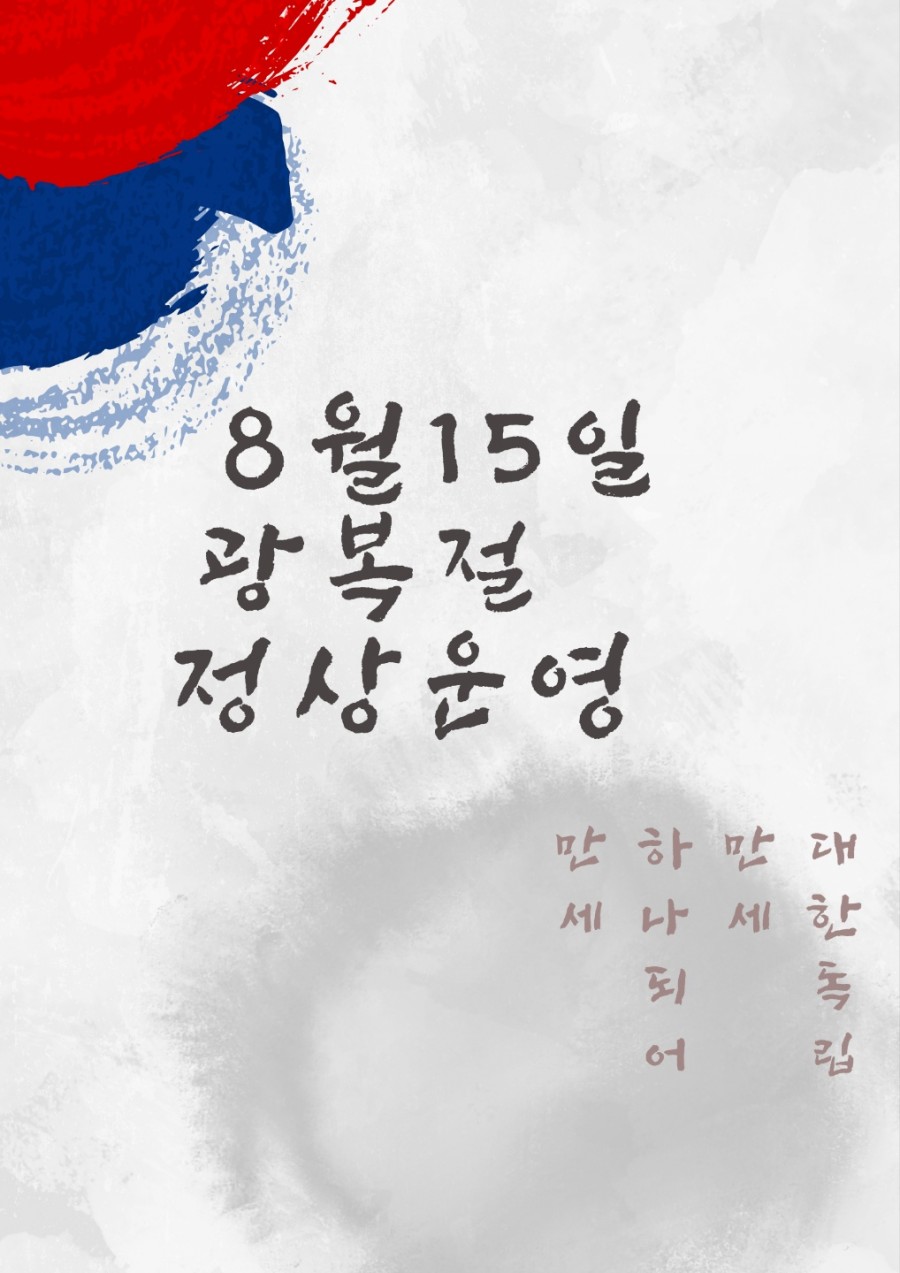 8월15일
광복절
정상운영
대한독립
만세
하나되어
만세